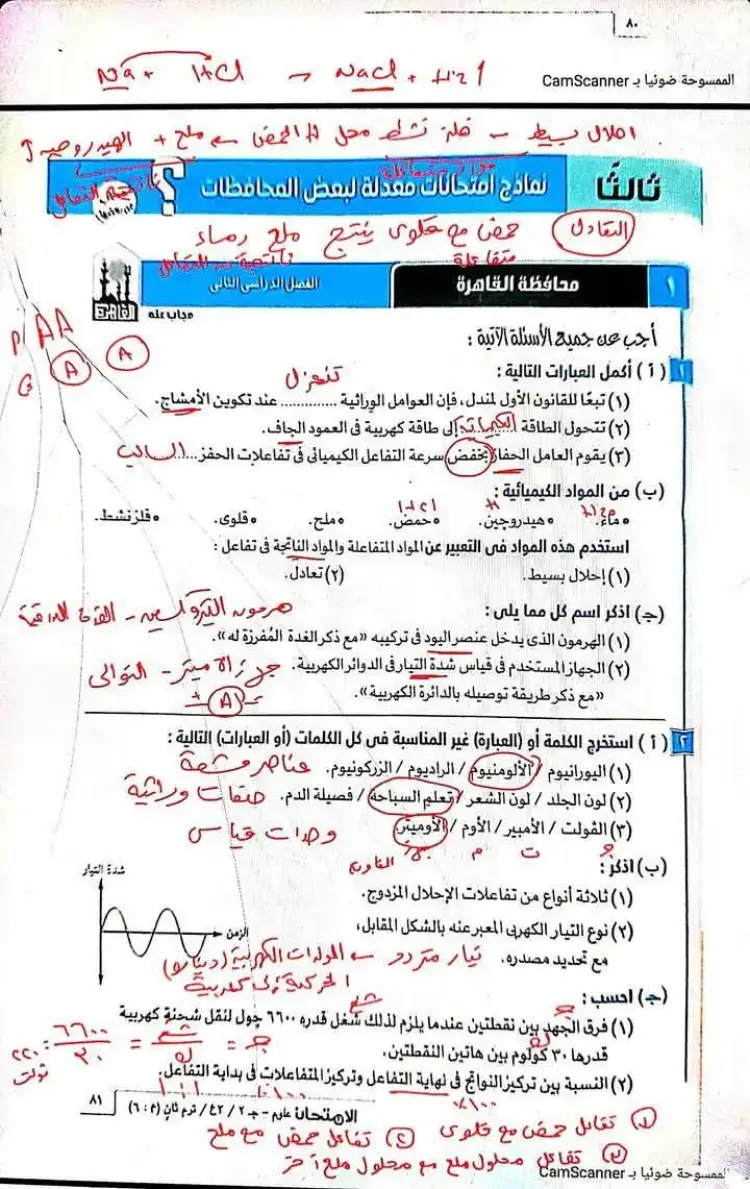 ٨٠
Na + HCl → NaCl + H2↑
الممسوحة ضوئيا بـ CamScanner
احلال بسيط ← فلز نشط محل H الحمض ← ملح + الهيدروجين ↑
ثالثًا
نماذج امتحانات معدلة لبعض المحافظات
التعادل
حمض مع قلوى ينتج ملح وماء
متفاعلة
١ محافظة القاهرة
الفصل الدراسى الثانى
مجاب عنه
AA
A A
أجب عن جميع الأسئلة الآتية :
١ ( أ ) أكمل العبارات التالية :
تنعزل
(١) تبعًا للقانون الأول لمندل، فإن العوامل الوراثية ............ عند تكوين الأمشاج.
(٢) تتحول الطاقة الكيميائية إلى طاقة كهربية فى العمود الجاف.
(٣) يقوم العامل الحفاز بخفض سرعة التفاعل الكيميائى فى تفاعلات الحفز ... السالب
(ب) من المواد الكيميائية :
H2O H HCl
• ماء. • هيدروچين. • حمض. • ملح. • قلوى. • فلز نشط.
استخدم هذه المواد فى التعبير عن المواد المتفاعلة والمواد الناتجة فى تفاعل :
(١) إحلال بسيط. (٢) تعادل.
(جـ) اذكر اسم كل مما يلى :
هرمون الثيروكسين - الغدة الدرقية
(١) الهرمون الذى يدخل عنصر اليود فى تركيبه «مع ذكر الغدة المُفرزة له».
(٢) الجهاز المستخدم فى قياس شدة التيار فى الدوائر الكهربية.
جهاز الاميتر - التوالى
«مع ذكر طريقة توصيله بالدائرة الكهربية».
+ A -
٢ ( أ ) استخرج الكلمة أو (العبارة) غير المناسبة فى كل الكلمات (أو العبارات) التالية :
(١) اليورانيوم / الألومنيوم / الراديوم / الزركونيوم. عناصر مشعة
(٢) لون الجلد / لون الشعر / تعلم السباحة / فصيلة الدم. صفات وراثية
(٣) الڤولت / الأمبير / الأوم / الأوميتر وحدات قياس
جـ ت م
(ب) اذكر :
(١) ثلاثة أنواع من تفاعلات الإحلال المزدوج.
شدة التيار
الزمن
(٢) نوع التيار الكهربى المعبر عنه بالشكل المقابل،
مع تحديد مصدره. تيار متردد ← المولدات الكهربية (دينامو)
الحركية إلى كهربية
(جـ) احسب :
(١) فرق الجهد بين نقطتين عندما يلزم لذلك شغل قدره ٦٦٠٠ چول لنقل شحنة كهربية
قدرها ٣٠ كولوم بين هاتين النقطتين.
جـ = شغ / ك = ٦٦٠٠ / ٣٠ = ٢٢٠ ڤولت
(٢) النسبة بين تركيز النواتج فى نهاية التفاعل وتركيز المتفاعلات فى بداية التفاعل.
٪١٠٠
الامتحان علوم - جـ ٢ / ع٢ / ترم ثان (م : ٦) ٨١
(١) تفاعل حمض مع قلوى (٢) تفاعل حمض مع ملح
(٣) تفاعل محلول ملح مع محلول ملح آخر
الممسوحة ضوئيا بـ CamScanner